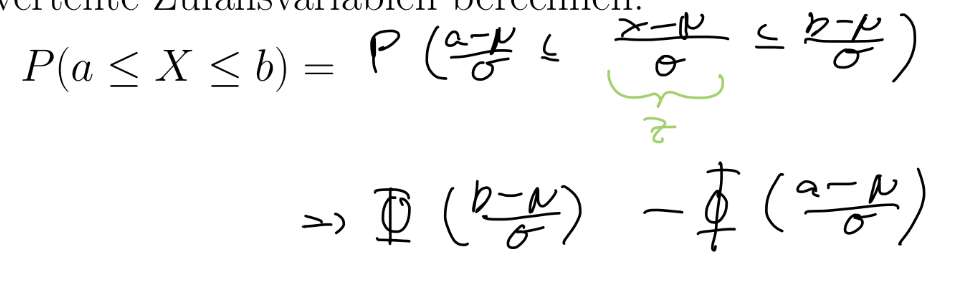 Zufallsvariablen berechnen.
P(a ≤ X ≤ b) = P (a−μ/σ ≤ x−μ/σ ≤ b−μ/σ)
z
=> Φ (b−μ/σ) − Φ (a−μ/σ)